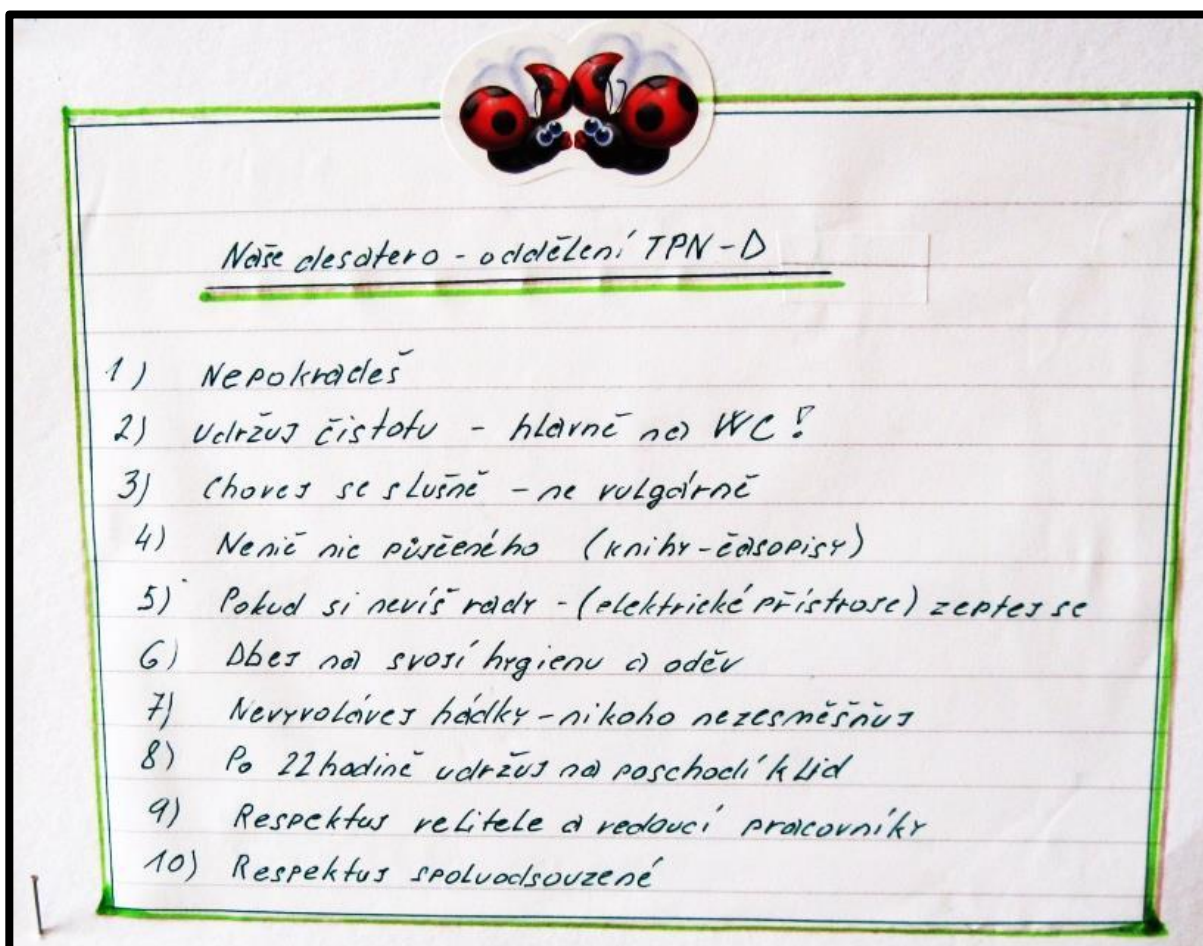 Naše desatero - oddělení TPN-D
1) Nepokradeš
2) Udržuj čistotu - hlavně na WC!
3) Chovej se slušně - ne vulgárně
4) Nenič nic půjčeného (knihy-časopisy)
5) Pokud si nevíš rady - (elektrické přístroje) zeptej se
6) Dbej na svojí hygienu a oděv
7) Nevyvolávej hádky - nikoho nezesměšňuj
8) Po 22 hodině udržuj na poschodí klid
9) Respektuj velitele a vedoucí pracovníky
10) Respektuj spoluodsouzené